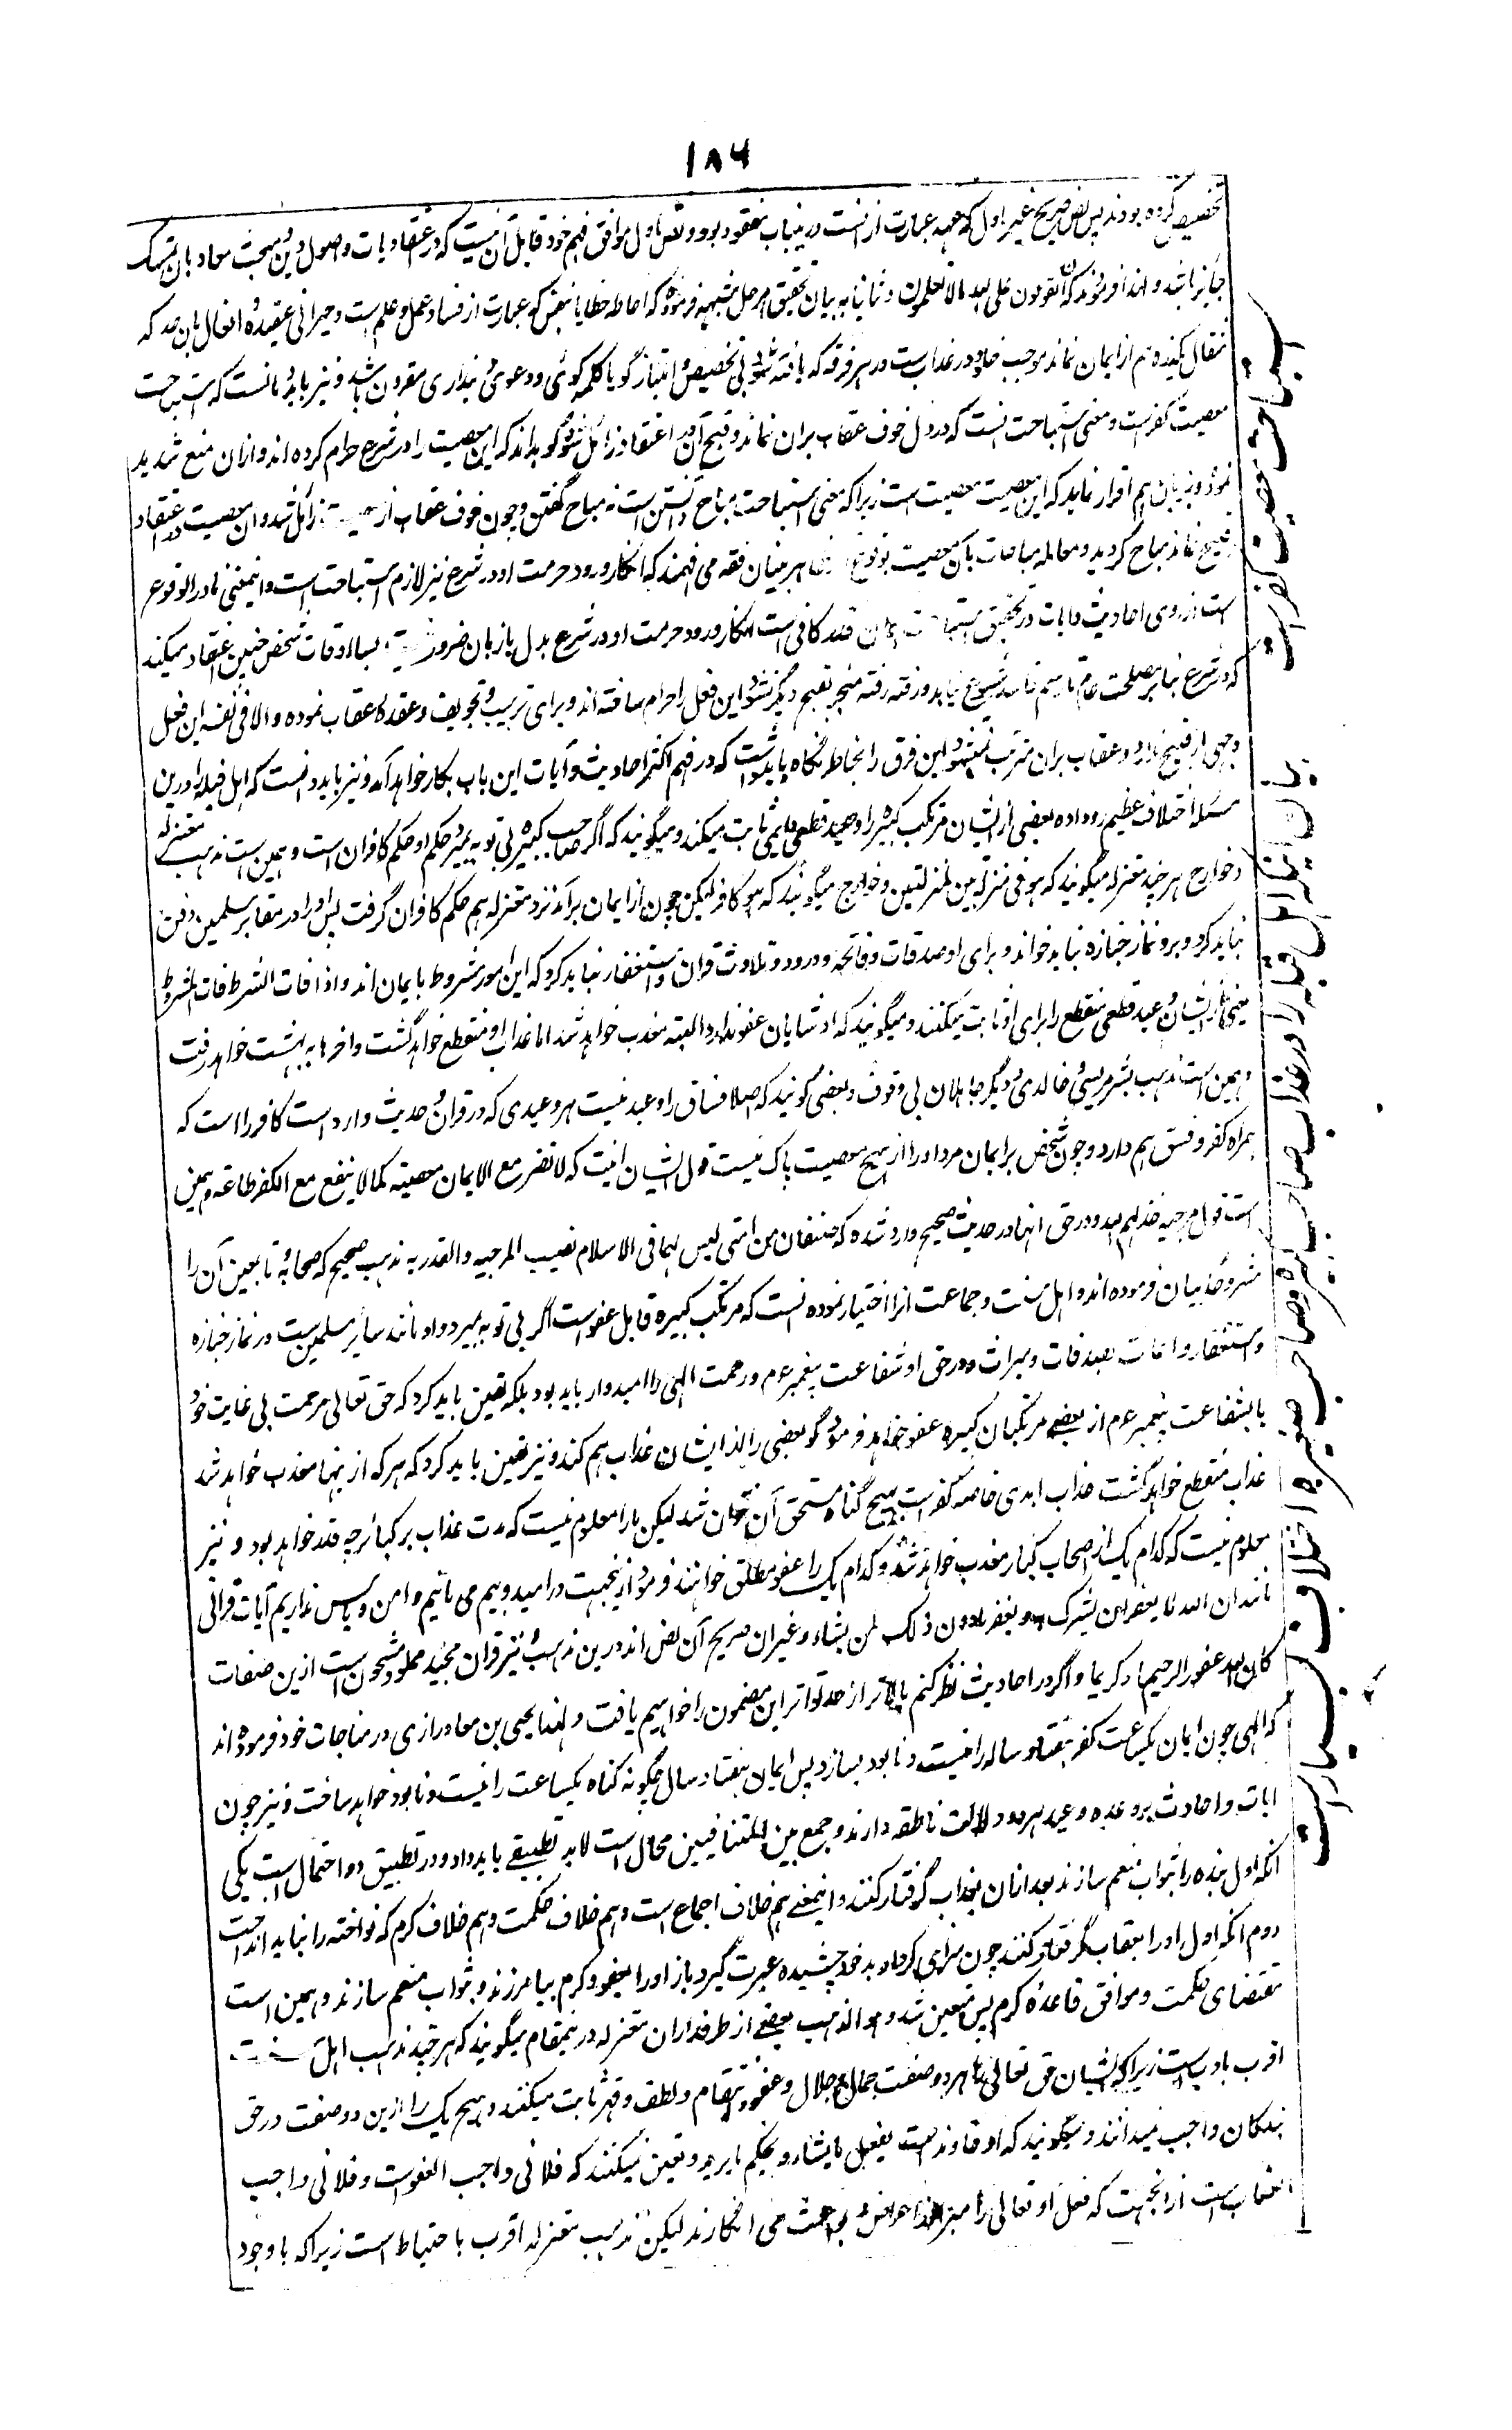 ۱۸۶
تخصیص کرده بودند پس نص صریح غیر اول که عهد عبارت از انست درینباب مفقود بود و نص اول موافق فهم خود قابل آن نیست که در اعتقادیات و اصول دین و مبحث معاد بان تمسک
جایز باشد و لهذا فرمودند که ام تقولون علی الله مالا تعلمون و ثانیا به بیان تحقیق امر حل شبهه فرموده که احاطه خطایا بنفس که عبارت از فساد عمل و علم است و خیرانی عقیده و افعال بان حد که
مثقال یکذره هم از ایمان نماند موجب خلود در عذاب است در هر فرقه که یافته شود بی تخصیص و امتیاز گو با کلمه گوئی و دعوی دینداری مقرون باشد و نیز باید دانست که استباحت
معصیت کفر است و معنی استباحت انست که در دل خوف عقاب بران نماند و قبح آن از اعتقاد زائل شود گو بداند که این معصیت را در شرع حرام کرده اند و ازان منع شدید
نموده و بزبان هم اقرار نماید که این معصیت معصیت است زیرا که معنی استباحت مباح دانستن است نه مباح گفتن و چون خوف عقاب از معصیت زائل شد و ان معصیت در اعتقاد
قبیح نماند مباح گردید و معامله مباحات بآن معصیت بوقوع ظاهر بینان فقه می فهمند که انکار ورود حرمت او در شرع نیز لازم استباحت است و اینمعنی نادر الوقوع
است از روی احادیث و ایات در تحقیق استباحت همان قدر کافی است انکار ورود حرمت او در شرع بدل یا زبان ضرور نیست بسا اوقات شخص چنین اعتقاد میکند
که در شرع بنا بر مصلحت عام تا رسم فاسد شیوع نیابد و رفته رفته منجر بقبح دیگر نشود این فعل را حرام ساخته اند و برای ترهیب و تخویف وعده عقاب نموده و الا فی نفسه این فعل
وجهی از قبیح ندارد و عقاب بران مترتب نمیشود این فرق را بخاطر نگاه باید داشت که در فهم اکثر احادیث و آیات این باب بکار خواهد آمد و نیز باید دانست که اهل قبله را درین
مسئله اختلاف عظیم رو داده بعضی از ایشان مرتکب کبیره را وعید قطعی دایمی ثابت میکند و میگویند که اگر صاحب کبیره بی توبه بمیرد حکم او حکم کافران است و همین است مذهب معتزله
و خوارج هر چند معتزله میگویند که هو فی منزله بین المنزلتین و خوارج میگویند که هو کافر لیکن چون از ایمان برآمد نزد معتزله هم حکم کافران گرفت پس او را در مقابر مسلمین دفن
نباید کرد و برو نماز جنازه نباید خواند و برای او صدقات و فاتحه و درود و تلاوت قران و استغفار نباید کرد که این امور مشروط بایمان اند و اذا فات الشرط فات المشروط
بعضی از ایشان وعید قطعی منقطع را برای او ثابت میکنند و میگویند که او شایان عفو ندارد البته معذب خواهد شد اما عذاب او منقطع خواهد گشت و اخرها به بهشت خواهد رفت
و همین است مذهب بشر مریسی و خالدی و دیگر جاهلان بی وقوف و بعضی گویند که اصلا فساق را وعید نیست هر وعیدی که در قران و حدیث وارد است کافر را است که
همراه کفر و فسق هم دارد و چون شخص بر ایمان مرد او را از هیچ معصیت باک نیست قول ایشان انیست که لا تضر مع الایمان معصیة کما لا ینفع مع الکفر طاعة و همین
است قول مرجیه خذلهم الله و در حق انها در حدیث صحیح وارد شده که صنفان من امتی لیس لهما فی الاسلام نصیب المرجیه و القدریه مذهب صحیح که صحابه و تابعین آن را
مشروحا بیان فرموده اند و اهل سنت و جماعت انرا اختیار نموده انست که مرتکب کبیره قابل عفو است اگر بی توبه بمیرد و او مانند سایر مسلمین است در نماز جنازه
و استغفار و اعانت بصدقات و مبرات و در حق او شفاعت پیغمبر عم و رحمت الهی را امیدوار باید بود بلکه یقین باید کرد که حق تعالی بمرحمت بی غایت خود
یا بشفاعت پیغمبر عم از بعضی مرتکبان کبیره عفو خواهد فرمود گو بعضی را از ایشان عذاب هم کند و نیز یقین باید کرد که هر که ازینها معذب خواهد شد
عذاب منقطع خواهد گشت عذاب ابدی خاصه کفر است بهیچ گناه مستحق آن نتوان شد لیکن ما را معلوم نیست که مدت عذاب بر کبائر چه قدر خواهد بود و نیز
معلوم نیست که کدام یک از اصحاب کبار معذب خواهد شد و کدام یک را عفو مطلق خواهند فرمود ازینجهت در امید و بیم می باشیم و امن و یاس نداریم آیات قرانی
مانند ان الله لا یغفر ان یشرک به و یغفر مادون ذلک لمن یشاء و غیر ان صریح آن نص اند درین مذهب و نیز قران مجید مملو و مشحون است ازین صفات
کان الله غفورا رحیما جوادا کریما و اگر در احادیث نظر کنیم بالاتر از حد تواتر این مضمون را خواهیم یافت و لهذا یحیی بن معاذ رازی در مناجات خود فرموده اند
که الهی چون ایمان یکساعت کفر هفتاد ساله را نیست و نابود بسازد پس ایمان هفتاد سال چگونه گناه یکساعت را نیست و نابود نخواهد ساخت و نیز چون
ایات و احادیث بر وعده و وعید هر دو دلالت ناطقه دارند و جمع بین المتنافیین محال است لابد تطبیقی باید داد و در تطبیق دو احتمال است یکی
انکه اول بنده را بثواب منعم سازند بعد ازان بعذاب گرفتار کنند و اینمعنی هم خلاف اجماع است و هم خلاف حکمت و هم خلاف کرم که نواخته را نباید انداخت
دوم انکه اول او را بعقاب گرفتار کنند چون سزای کردار بد خود چشیده عبرت گیرد باز او را بعفو و کرم بیامرزند و بثواب منعم سازند و همین است
مقتضای حکمت و موافق قاعده کرم پس متعین شد و هو المذهب بعضی از طرفداران معتزله درینمقام میگویند که هر چند مذهب اهل سنت
اقرب بادب است زیرا که ایشان حق تعالی را بهر دو صفت جمال و جلال و عفو و انتقام و لطف و قهر ثابت میکنند و هیچ یک را ازین دو صفت در حق
بندگان واجب نمیدانند و میگویند که او خاوند است یفعل ما یشاء و یحکم ما یرید و تعین نمیکنند که فلانی واجب العفو است و فلانی واجب
العقاب است ازانجهت که فعل او تعالی را مبرا از اغراض و بواعث می انگارند لیکن مذهب معتزله اقرب باحتیاط است زیرا که با وجود
استباحت معصیت کفر است
بیان اینکه اهل قبله را در عذاب صاحب کبیره و صاحب صغیره اختلاف بسیار است